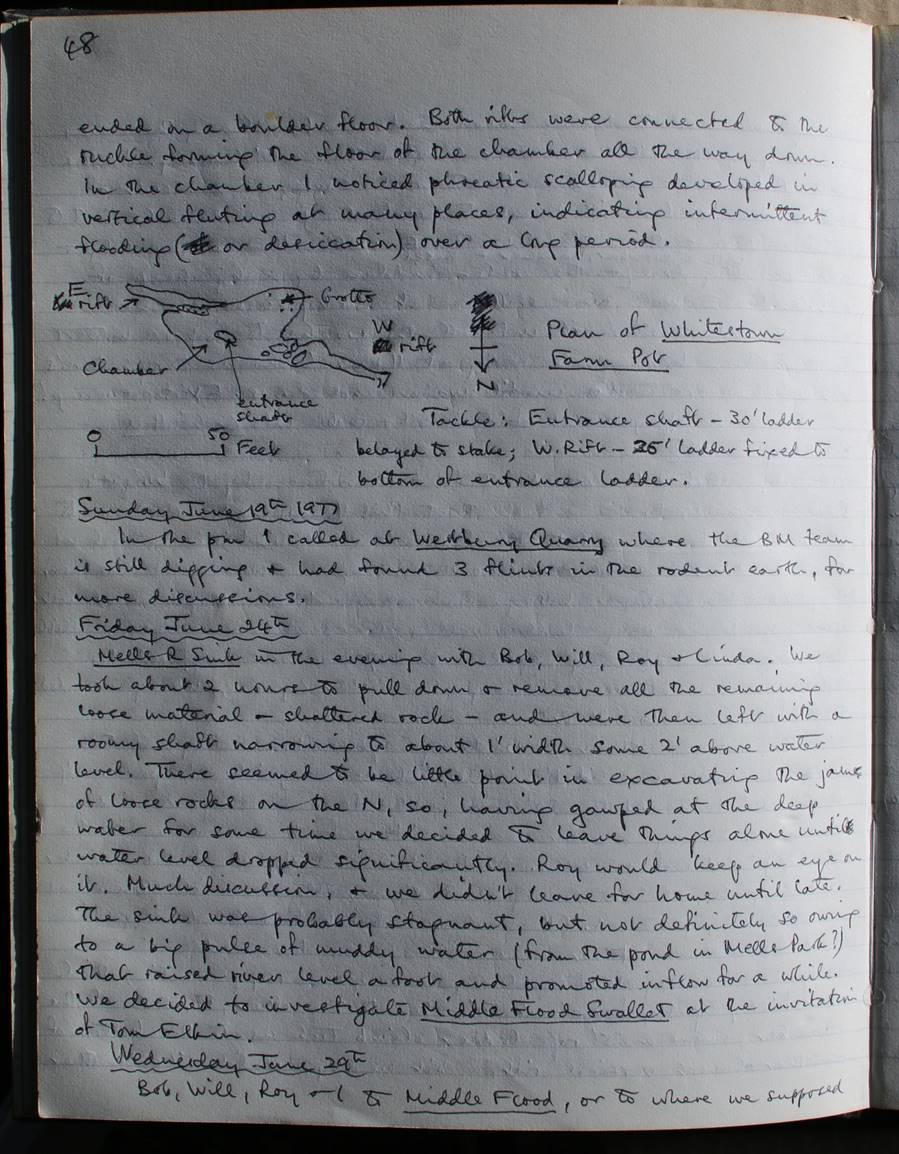 48
ended in a boulder floor. Both rifts were connected to the
ruckle forming the floor of the chamber all the way down.
In the chamber I noticed phreatic scalloping developed in
vertical fluting at many places, indicating intermittent
flooding (or desiccation) over a long period.
E
rift
Grotto
W
rift
Chamber
entrance
shaft
N
Plan of Whitestown
Farm Pot
0 50 Feet
Tackle: Entrance shaft - 30' ladder
belayed to stake; W. Rift - 25' ladder fixed to
bottom of entrance ladder.
Sunday June 19th 1977
In the pm I called at Westbury Quarry where the BM team
is still digging + had found 3 flints in the rodent earth, for
more discussions.
Friday June 24th
Mells R Sink in the evening with Bob, Will, Roy + Linda. We
took about 2 hours to pull down + remove all the remaining
loose material - shattered rock - and were then left with a
roomy shaft narrowing to about 1' width some 2' above water
level. There seemed to be little point in excavating the jams
of loose rocks on the N, so, having gawped at the deep
water for some time we decided to leave things alone until
water level dropped significantly. Roy would keep an eye on
it. Much discussion, + we didn't leave for home until late.
The sink was probably stagnant, but not definitely so owing
to a big pulse of muddy water (from the pond in Mells Park?)
that raised river level a foot and promoted inflow for a while.
We decided to investigate Middle Flood Swallet at the invitation
of Tom Elkin.
Wednesday June 29th
Bob, Will, Roy + I to Middle Flood, or to where we supposed